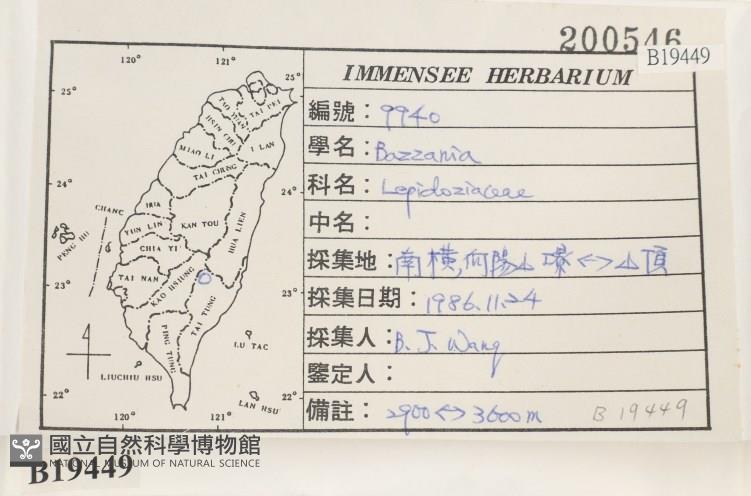 200546
B19449
IMMENSEE HERBARIUM
編號：9940
學名：Bazzania
科名：Lepidoziaceae
中名：
採集地：南橫,向陽山 ↔山頂
採集日期：1986.11.24
採集人：B. J. Wang
鑒定人：
備註：2900↔3600m
B 19449
120° 121° 25°
25°
TAI PEI
TAO YUAN
HSIN CHU
I LAN
MIAO LI
TAI CHUNG
24° 24°
CHANG HUA
NAN TOU
HUA LIEN
PENG HU
YUN LIN
CHIA YI
TAI NAN
KAO HSIUNG
23° 23°
TAI TUNG
PING TUNG
LU TAO
LIUCHIU HSU
LAN HSU
22° 22°
120° 121°
國立自然科學博物館
NATIONAL MUSEUM OF NATURAL SCIENCE
B19449